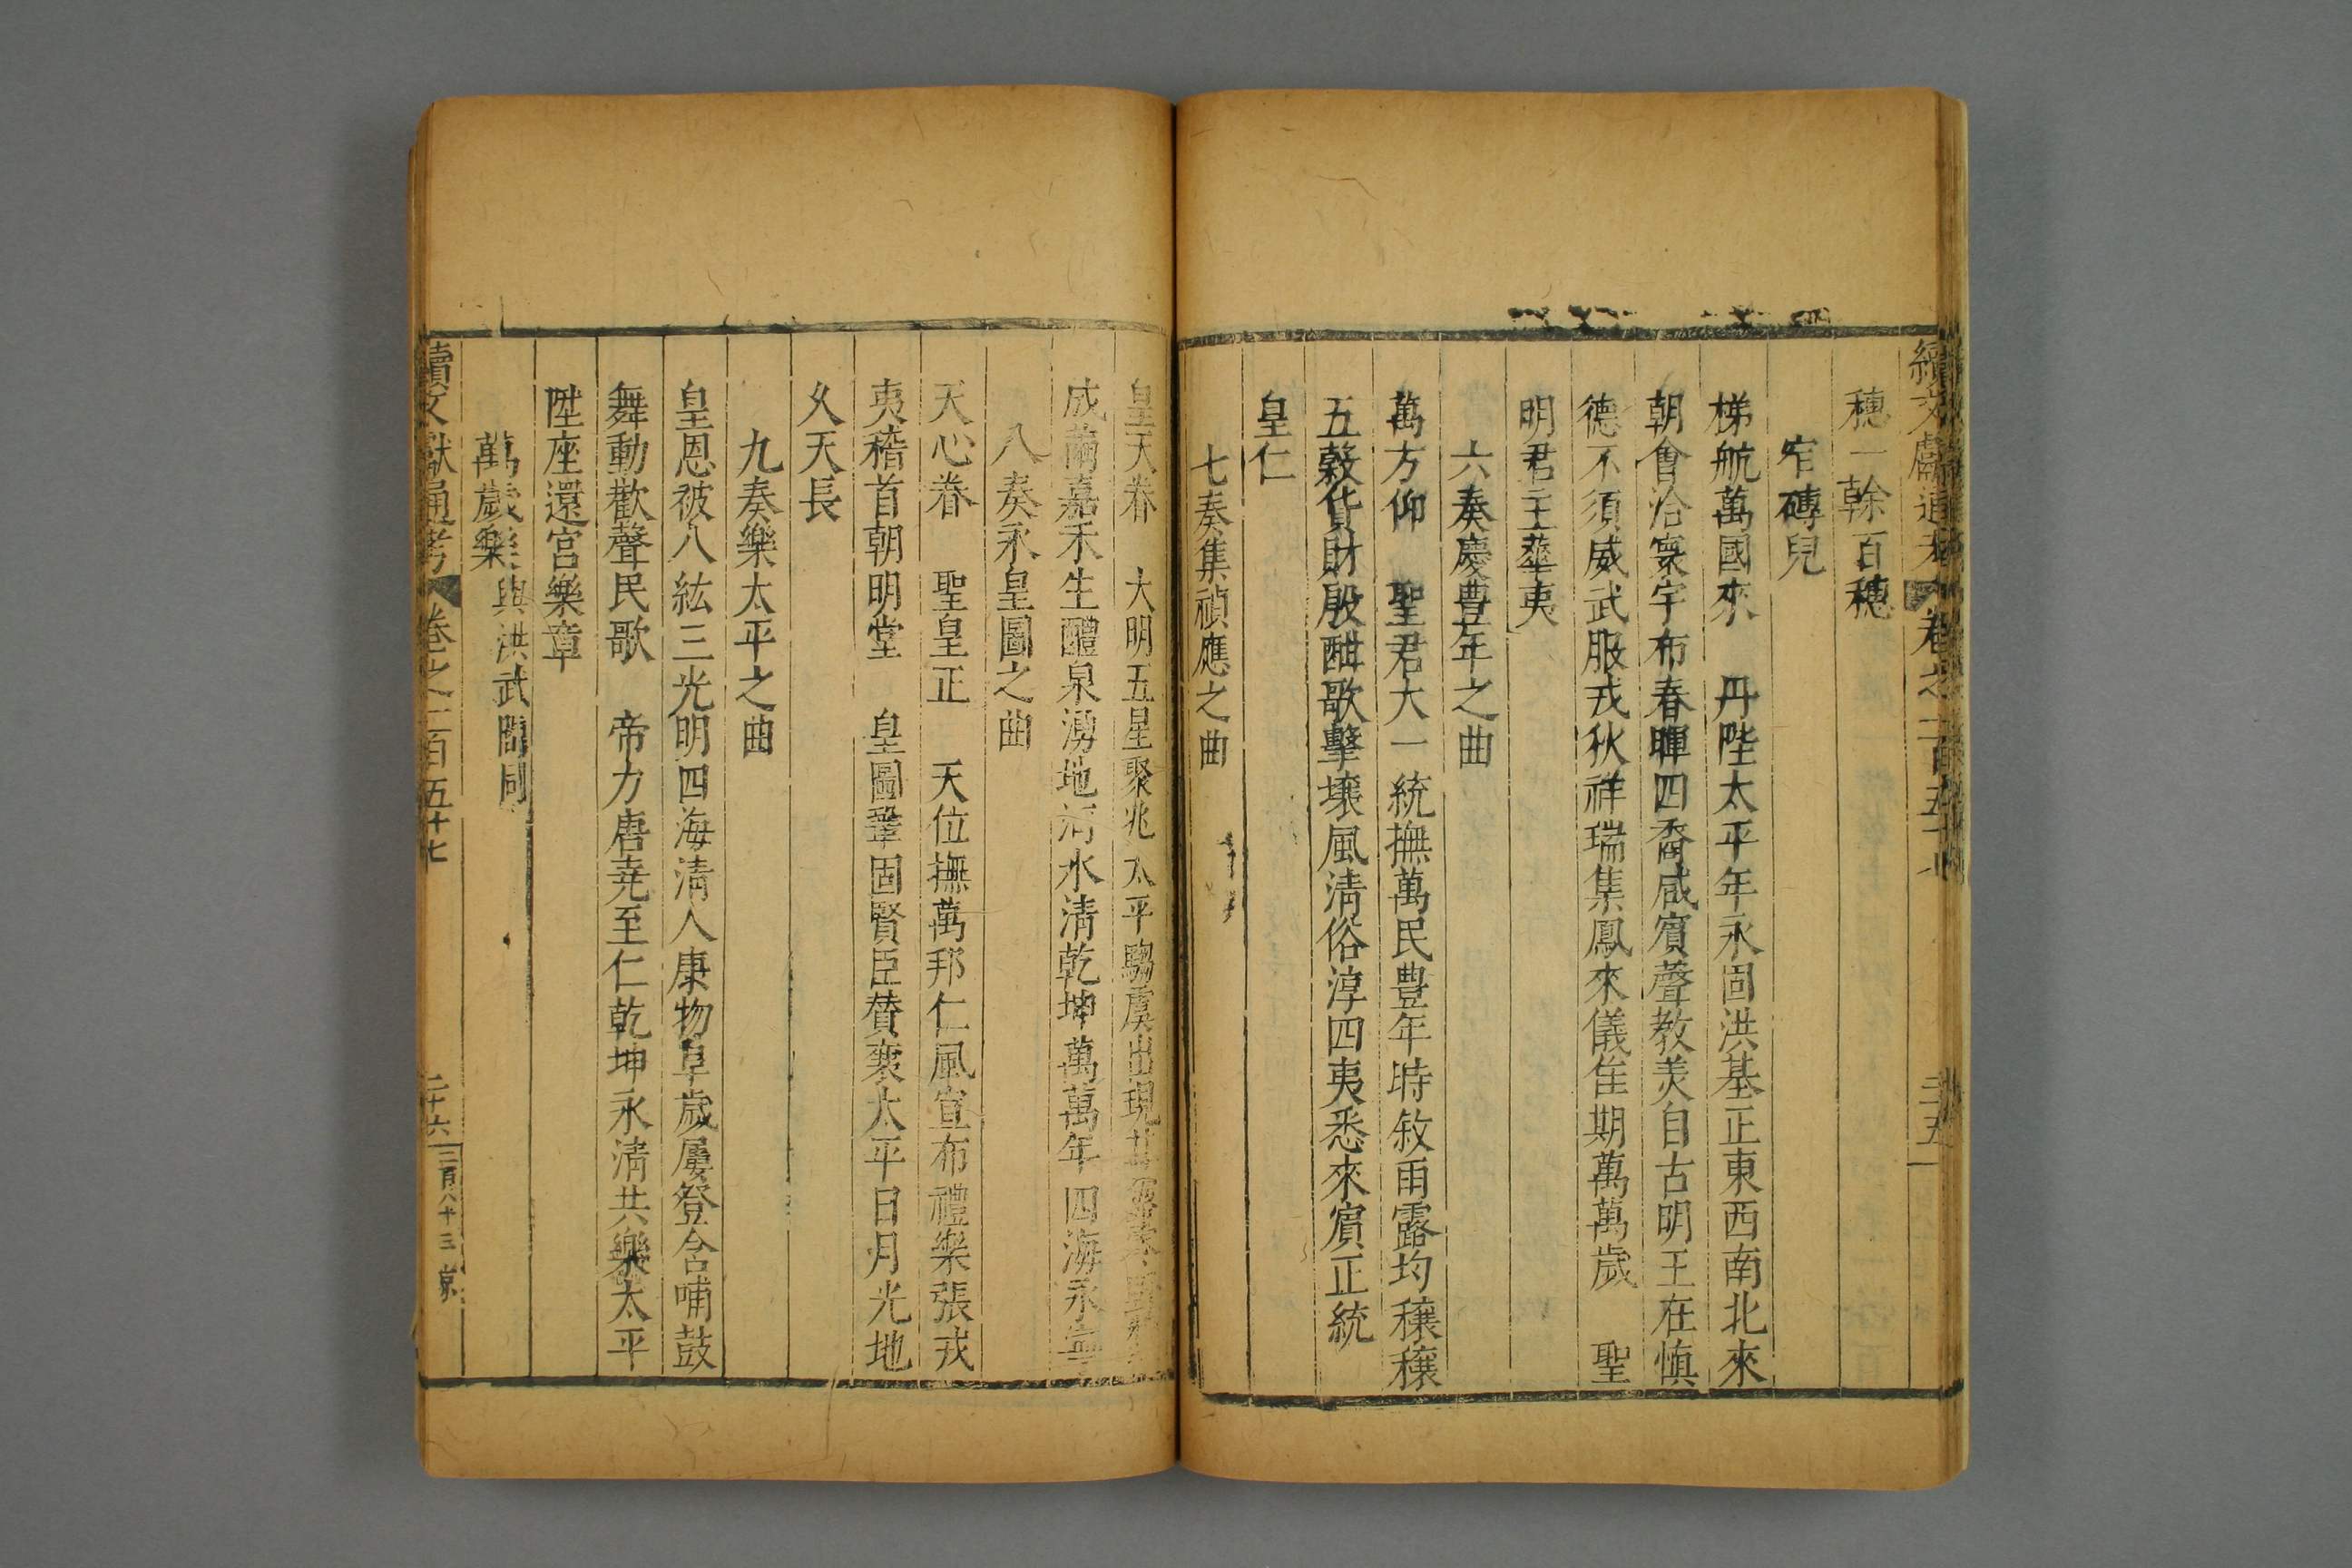 續文獻通考 卷之二百五十七 二十五
穗一幹百穗
窄磚兒
梯航萬國來 丹陛太平年永固洪基正東西南北來
朝會洽寰宇布春暉四裔咸賓聲教美自古明王在慎
德不須威武服戎狄祥瑞集鳳來儀隹期萬萬歲 聖
明君主華夷
六奏慶豊年之曲
萬方仰 聖君大一統撫萬民豊年時敘雨露均穰穰
五榖貨財殷酣歌擊壤風淸俗淳四夷悉來賓正統
皇仁
七奏集禎應之曲
皇天眷 大明五星聚兆太平騶虞出現甘露零野
成繭嘉禾生醴泉湧地河水淸乾坤萬萬年四海永寧
八奏永皇圖之曲
天心眷 聖皇正 天位撫萬邦仁風宣布禮樂張戎
夷稽首朝明堂 皇圖鞏固賢臣賛襄太平日月光地
久天長
九奏樂太平之曲
皇恩被八紘三光明四海淸人康物阜歲屢登含哺鼓
舞動歡聲民歌 帝力唐尭至仁乾坤永淸共樂太平
陞座還宮樂章
萬歲樂 與洪武間同
續文獻通考 卷之二百五十七 二十六 三百八十三